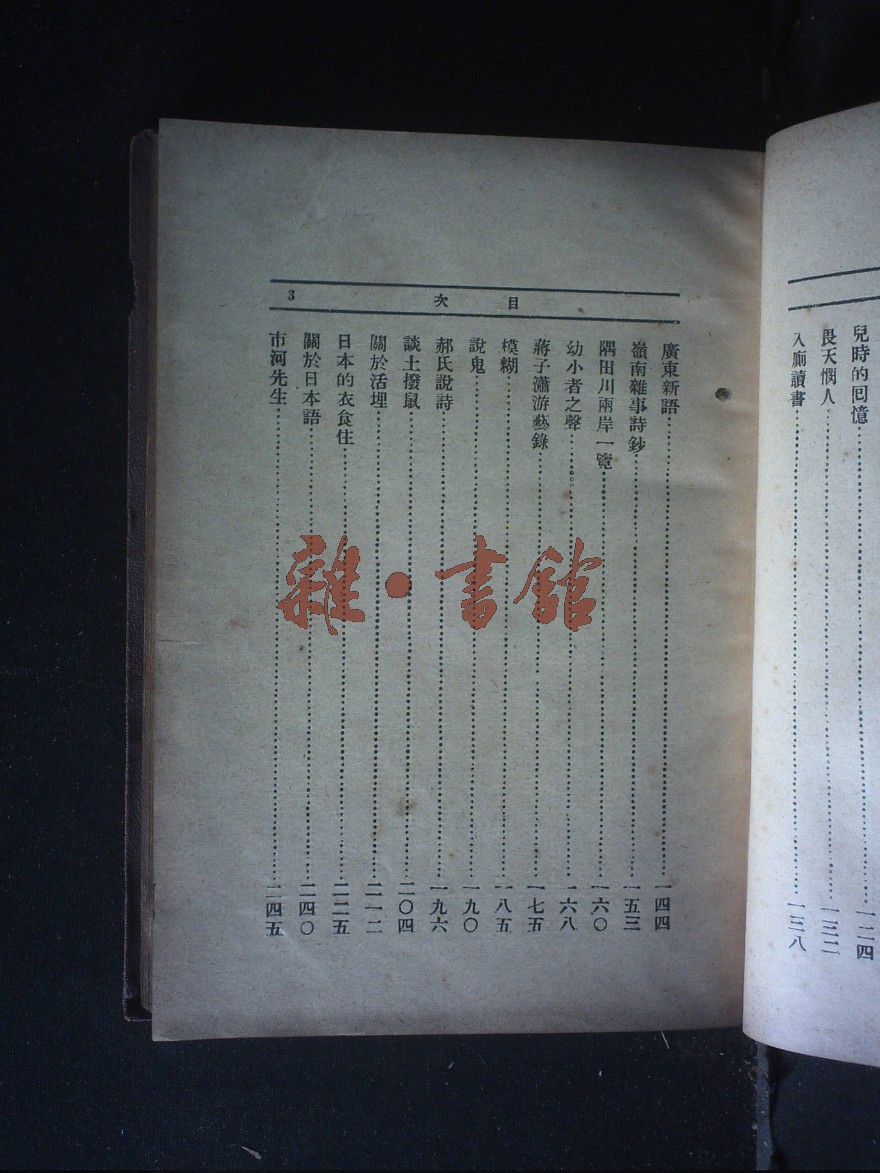 兒時的囘憶……一二四
畏天憫人……一三二
入廁讀書……一三八
目次 3
廣東新語……一四四
嶺南雜事詩鈔……一五三
隅田川兩岸一覽……一六〇
幼小者之聲……一六八
蔣子瀟游藝錄……一七五
模糊……一八五
說鬼……一九〇
郝氏說詩……一九六
談土撥鼠……二〇四
關於活埋……二一二
日本的衣食住……二二五
關於日本語……二四〇
市河先生……二四五
雜·書館